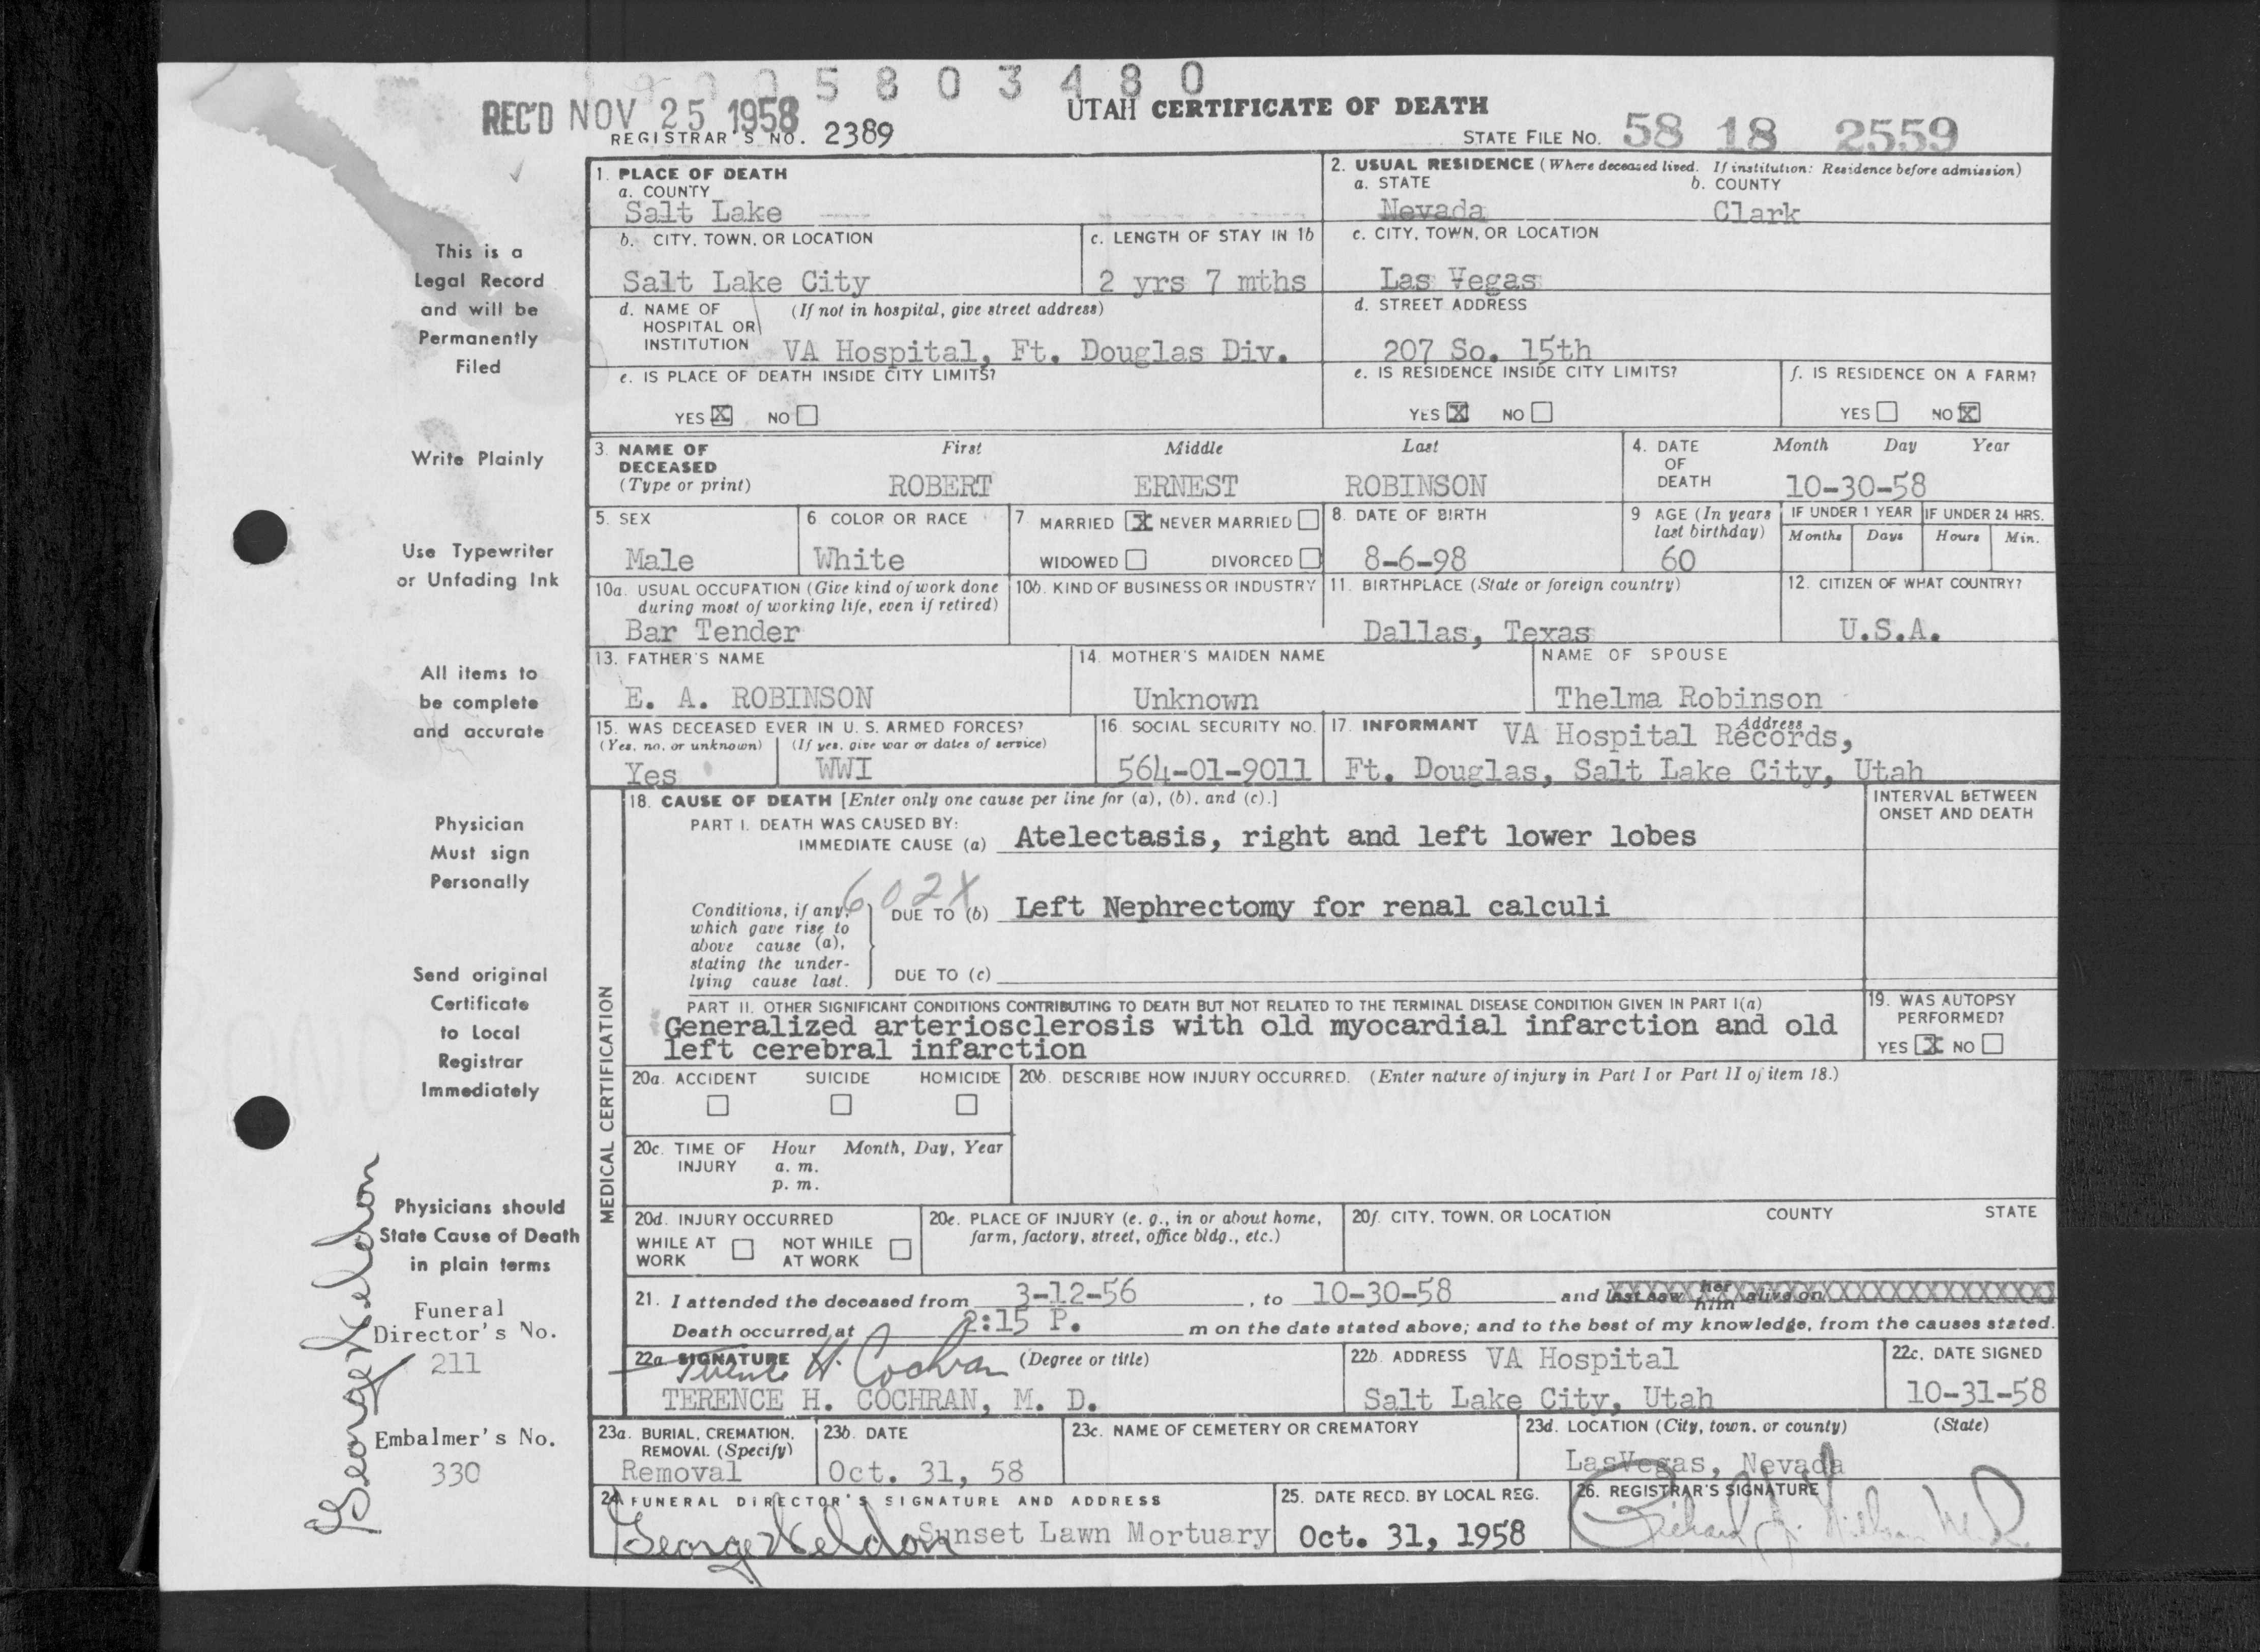 5 8 0 3 4 8 0
REC'D NOV 25 1958
UTAH CERTIFICATE OF DEATH
REGISTRAR'S NO. 2389
STATE FILE NO. 58 18 2559
This is a
Legal Record
and will be
Permanently
Filed
Write Plainly
Use Typewriter
or Unfading Ink
All items to
be complete
and accurate
Physician
Must sign
Personally
Send original
Certificate
to Local
Registrar
Immediately
Physicians should
State Cause of Death
in plain terms
Funeral
Director's No.
211
Embalmer's No.
330
George Keldon
1. PLACE OF DEATH
a. COUNTY
Salt Lake
2. USUAL RESIDENCE (Where deceased lived. If institution: Residence before admission)
a. STATE b. COUNTY
Nevada Clark
b. CITY, TOWN, OR LOCATION
Salt Lake City
c. LENGTH OF STAY IN 1b
2 yrs 7 mths
c. CITY, TOWN, OR LOCATION
Las Vegas
d. NAME OF (If not in hospital, give street address)
HOSPITAL OR
INSTITUTION VA Hospital, Ft. Douglas Div.
d. STREET ADDRESS
207 So. 15th
e. IS PLACE OF DEATH INSIDE CITY LIMITS?
YES X NO
e. IS RESIDENCE INSIDE CITY LIMITS?
YES X NO
f. IS RESIDENCE ON A FARM?
YES NO X
3. NAME OF DECEASED (Type or print)
First Middle Last
ROBERT ERNEST ROBINSON
4. DATE OF DEATH Month Day Year
10-30-58
5. SEX
Male
6 COLOR OR RACE
White
7 MARRIED X NEVER MARRIED
WIDOWED DIVORCED
8. DATE OF BIRTH
8-6-98
9 AGE (In years last birthday)
60
IF UNDER 1 YEAR IF UNDER 24 HRS.
Months Days Hours Min.
10a. USUAL OCCUPATION (Give kind of work done
during most of working life, even if retired)
Bar Tender
10b. KIND OF BUSINESS OR INDUSTRY
11. BIRTHPLACE (State or foreign country)
Dallas, Texas
12. CITIZEN OF WHAT COUNTRY?
U.S.A.
13. FATHER'S NAME
E. A. ROBINSON
14. MOTHER'S MAIDEN NAME
Unknown
NAME OF SPOUSE
Thelma Robinson
15. WAS DECEASED EVER IN U. S. ARMED FORCES?
(Yes, no, or unknown) (If yes, give war or dates of service)
Yes WWI
16. SOCIAL SECURITY NO.
564-01-9011
17. INFORMANT Address
VA Hospital Records,
Ft. Douglas, Salt Lake City, Utah
MEDICAL CERTIFICATION
18. CAUSE OF DEATH [Enter only one cause per line for (a), (b), and (c).]
INTERVAL BETWEEN
ONSET AND DEATH
PART I. DEATH WAS CAUSED BY:
IMMEDIATE CAUSE (a) Atelectasis, right and left lower lobes
602X
Conditions, if any,
which gave rise to
above cause (a),
stating the under-
lying cause last.
DUE TO (b) Left Nephrectomy for renal calculi
DUE TO (c)
PART II. OTHER SIGNIFICANT CONDITIONS CONTRIBUTING TO DEATH BUT NOT RELATED TO THE TERMINAL DISEASE CONDITION GIVEN IN PART I(a)
Generalized arteriosclerosis with old myocardial infarction and old
left cerebral infarction
19. WAS AUTOPSY
PERFORMED?
YES X NO
20a. ACCIDENT SUICIDE HOMICIDE
20b. DESCRIBE HOW INJURY OCCURRED. (Enter nature of injury in Part I or Part II of item 18.)
20c. TIME OF INJURY Hour Month, Day, Year
a. m.
p. m.
20d. INJURY OCCURRED
WHILE AT WORK NOT WHILE AT WORK
20e. PLACE OF INJURY (e. g., in or about home,
farm, factory, street, office bldg., etc.)
20f. CITY, TOWN, OR LOCATION COUNTY STATE
21. I attended the deceased from 3-12-56, to 10-30-58 and last saw her him alive on
Death occurred at 2:15 P. m on the date stated above; and to the best of my knowledge, from the causes stated.
22a. SIGNATURE (Degree or title)
Terence H. Cochran
TERENCE H. COCHRAN, M. D.
22b. ADDRESS VA Hospital
Salt Lake City, Utah
22c. DATE SIGNED
10-31-58
23a. BURIAL, CREMATION,
REMOVAL (Specify)
Removal
23b. DATE
Oct. 31, 58
23c. NAME OF CEMETERY OR CREMATORY
23d. LOCATION (City, town, or county) (State)
LasVegas, Nevada
24 FUNERAL DIRECTOR'S SIGNATURE AND ADDRESS
George Keldon Sunset Lawn Mortuary
25. DATE RECD. BY LOCAL REG.
Oct. 31, 1958
26. REGISTRAR'S SIGNATURE
Richard